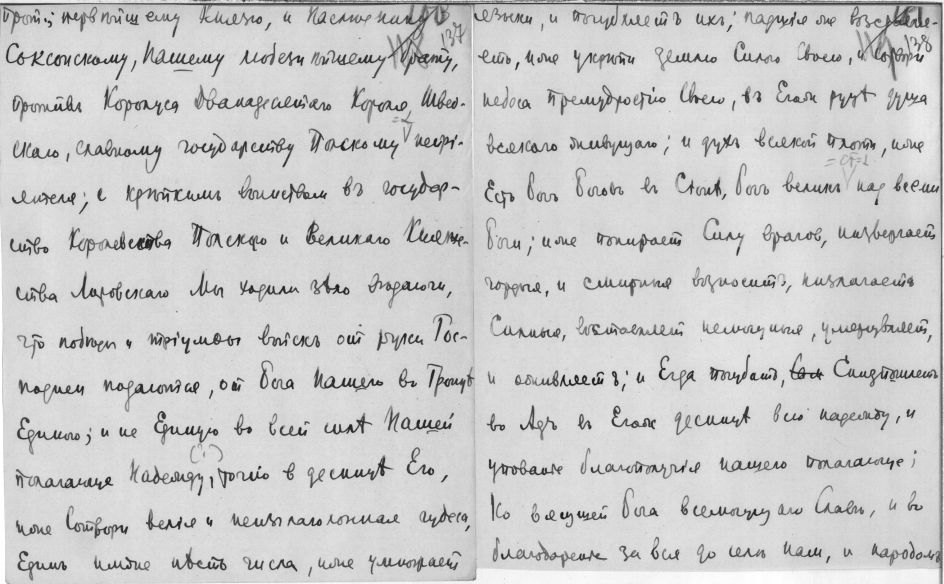 137
Соксонскому, Нашему любезнѣйшему брату,
противъ Королуса Дванадесятаго Короля Швед-
скаго, славному государству Полскому непрі-
ятеля; с крѣпкимъ воинствомъ въ государ-
ство Королевства Полскаго и Великаго Княже-
ства Литовскаго Мы ходили зѣло
что побѣды и тріумфы войскъ отъ руки Гос-
подней подаются, от Бога Нашего в Троицѣ
Единого; и не Единую во всей силѣ Нашей
(?)
полагающе Надежду, точію в десницѣ Его,
иже Сотвори велія и неизглаголанная чудеса,
Единъ имже нѣсть числа, иже умножаетъ
138
языки, и погубляетъ ихъ; падшія же возставля-
етъ, иже укрѣпи землю Силою Своею, и Сотвори
небеса Премудростію Своею, въ Егоже руцѣ душа
всякого живущаго; и духъ всякой плоти, иже
Есть богъ боговъ в Сіонѣ, богъ великъ над всеми
боги; иже попираетъ Силу врагов, низвергаетъ
гордыя, и смирныя возноситъ, низлагаетъ
Силныя, возставляетъ немощныя, умерщвляетъ,
и оживляетъ; и Егда
во Адъ в Егоже десницѣ всю надежду, и
упование благополучія нашего полагающе;
Ко вящщей бога всемогущаго Славѣ, и во
благодарение за вся до селѣ нам, и народомъ